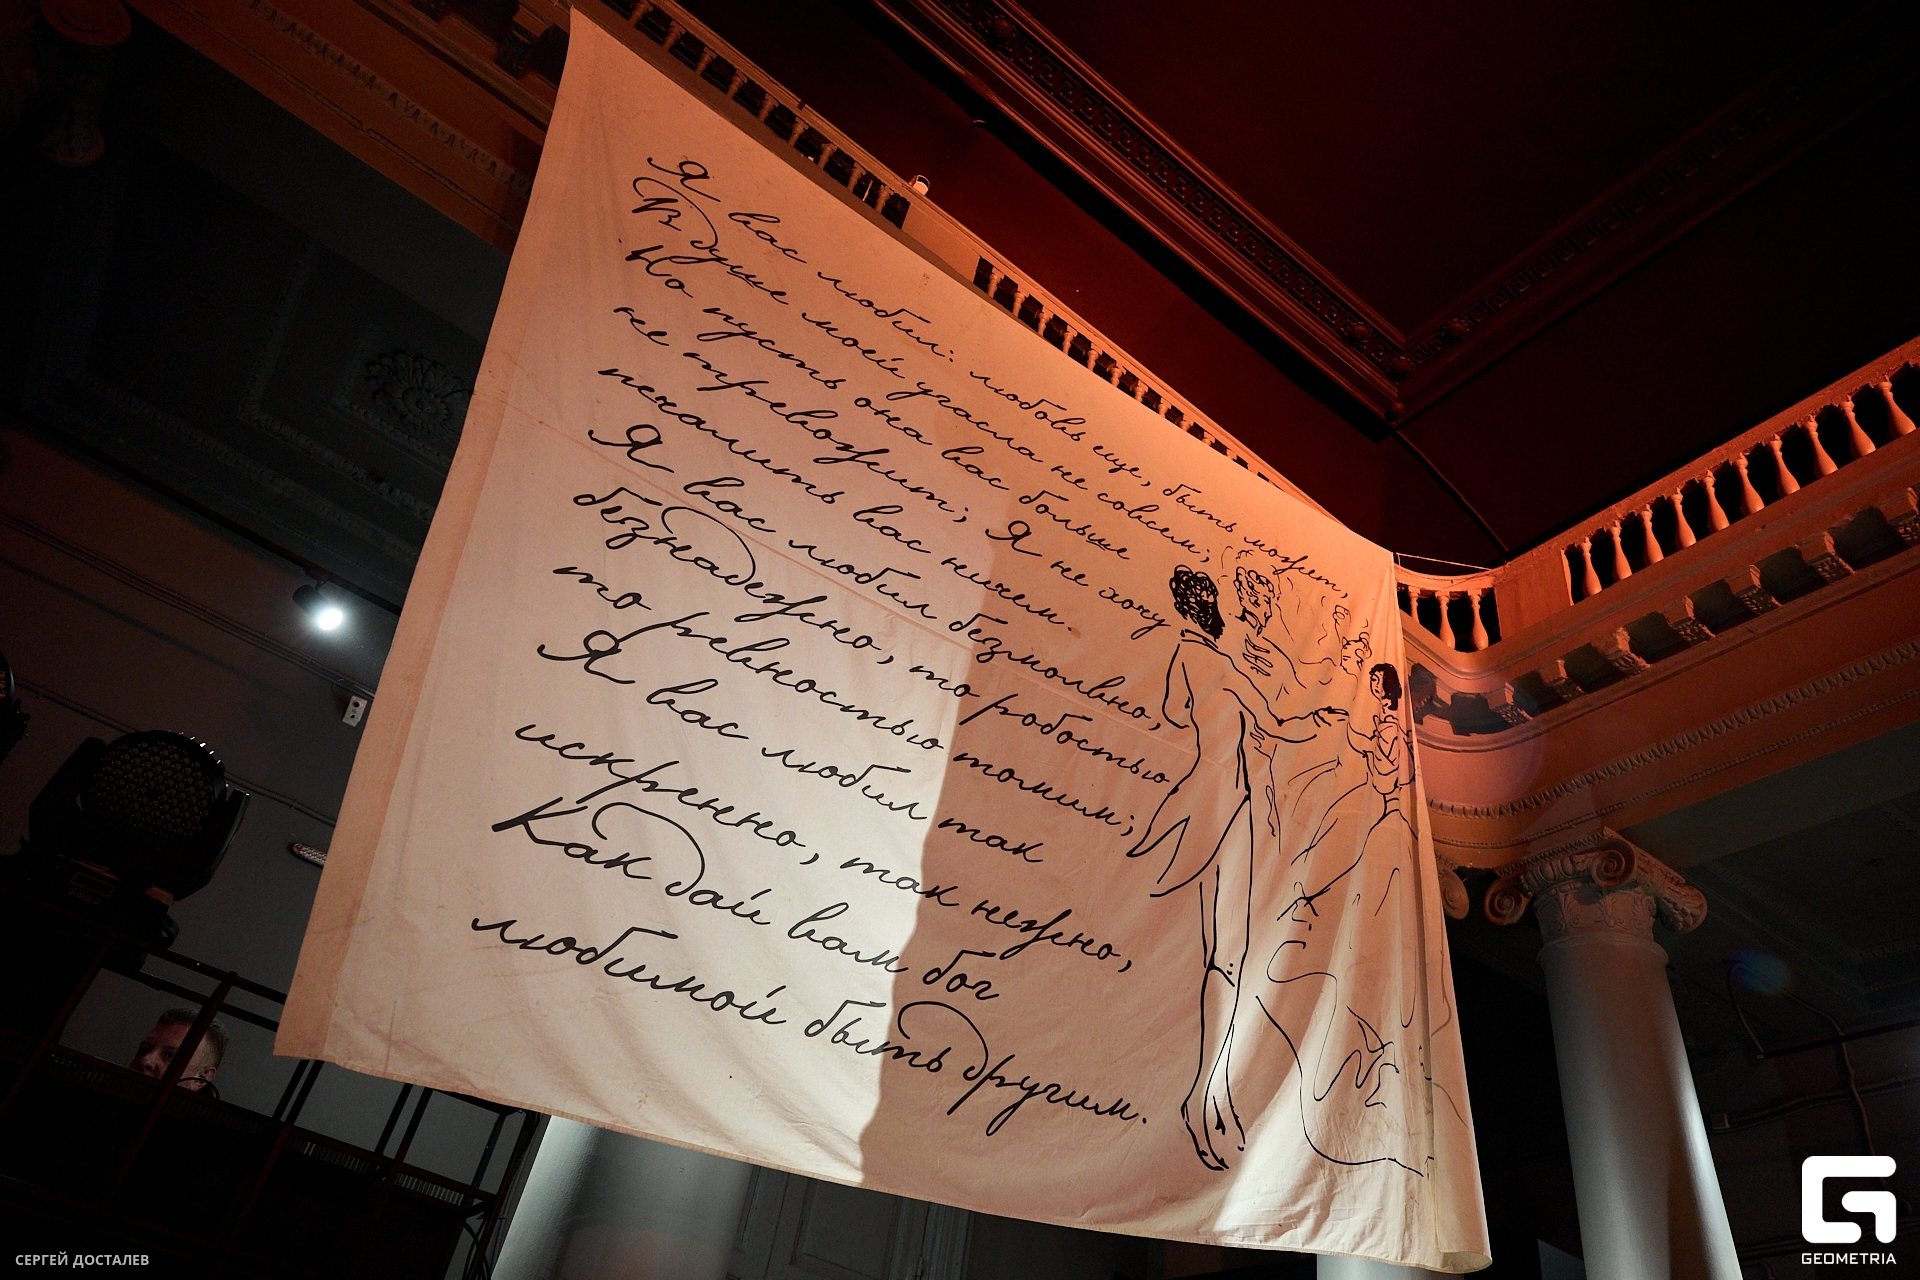 Я вас любил: любовь еще, быть может,
В душе моей угасла не совсем;
Но пусть она вас больше
не тревожит; Я не хочу
печалить вас ничем.
Я вас любил безмолвно,
безнадежно, то робостью
то ревностью томим;
Я вас любил так
искренно, так нежно,
Как дай вам бог
любимой быть другим.
СЕРГЕЙ ДОСТАЛЕВ
GEOMETRIA